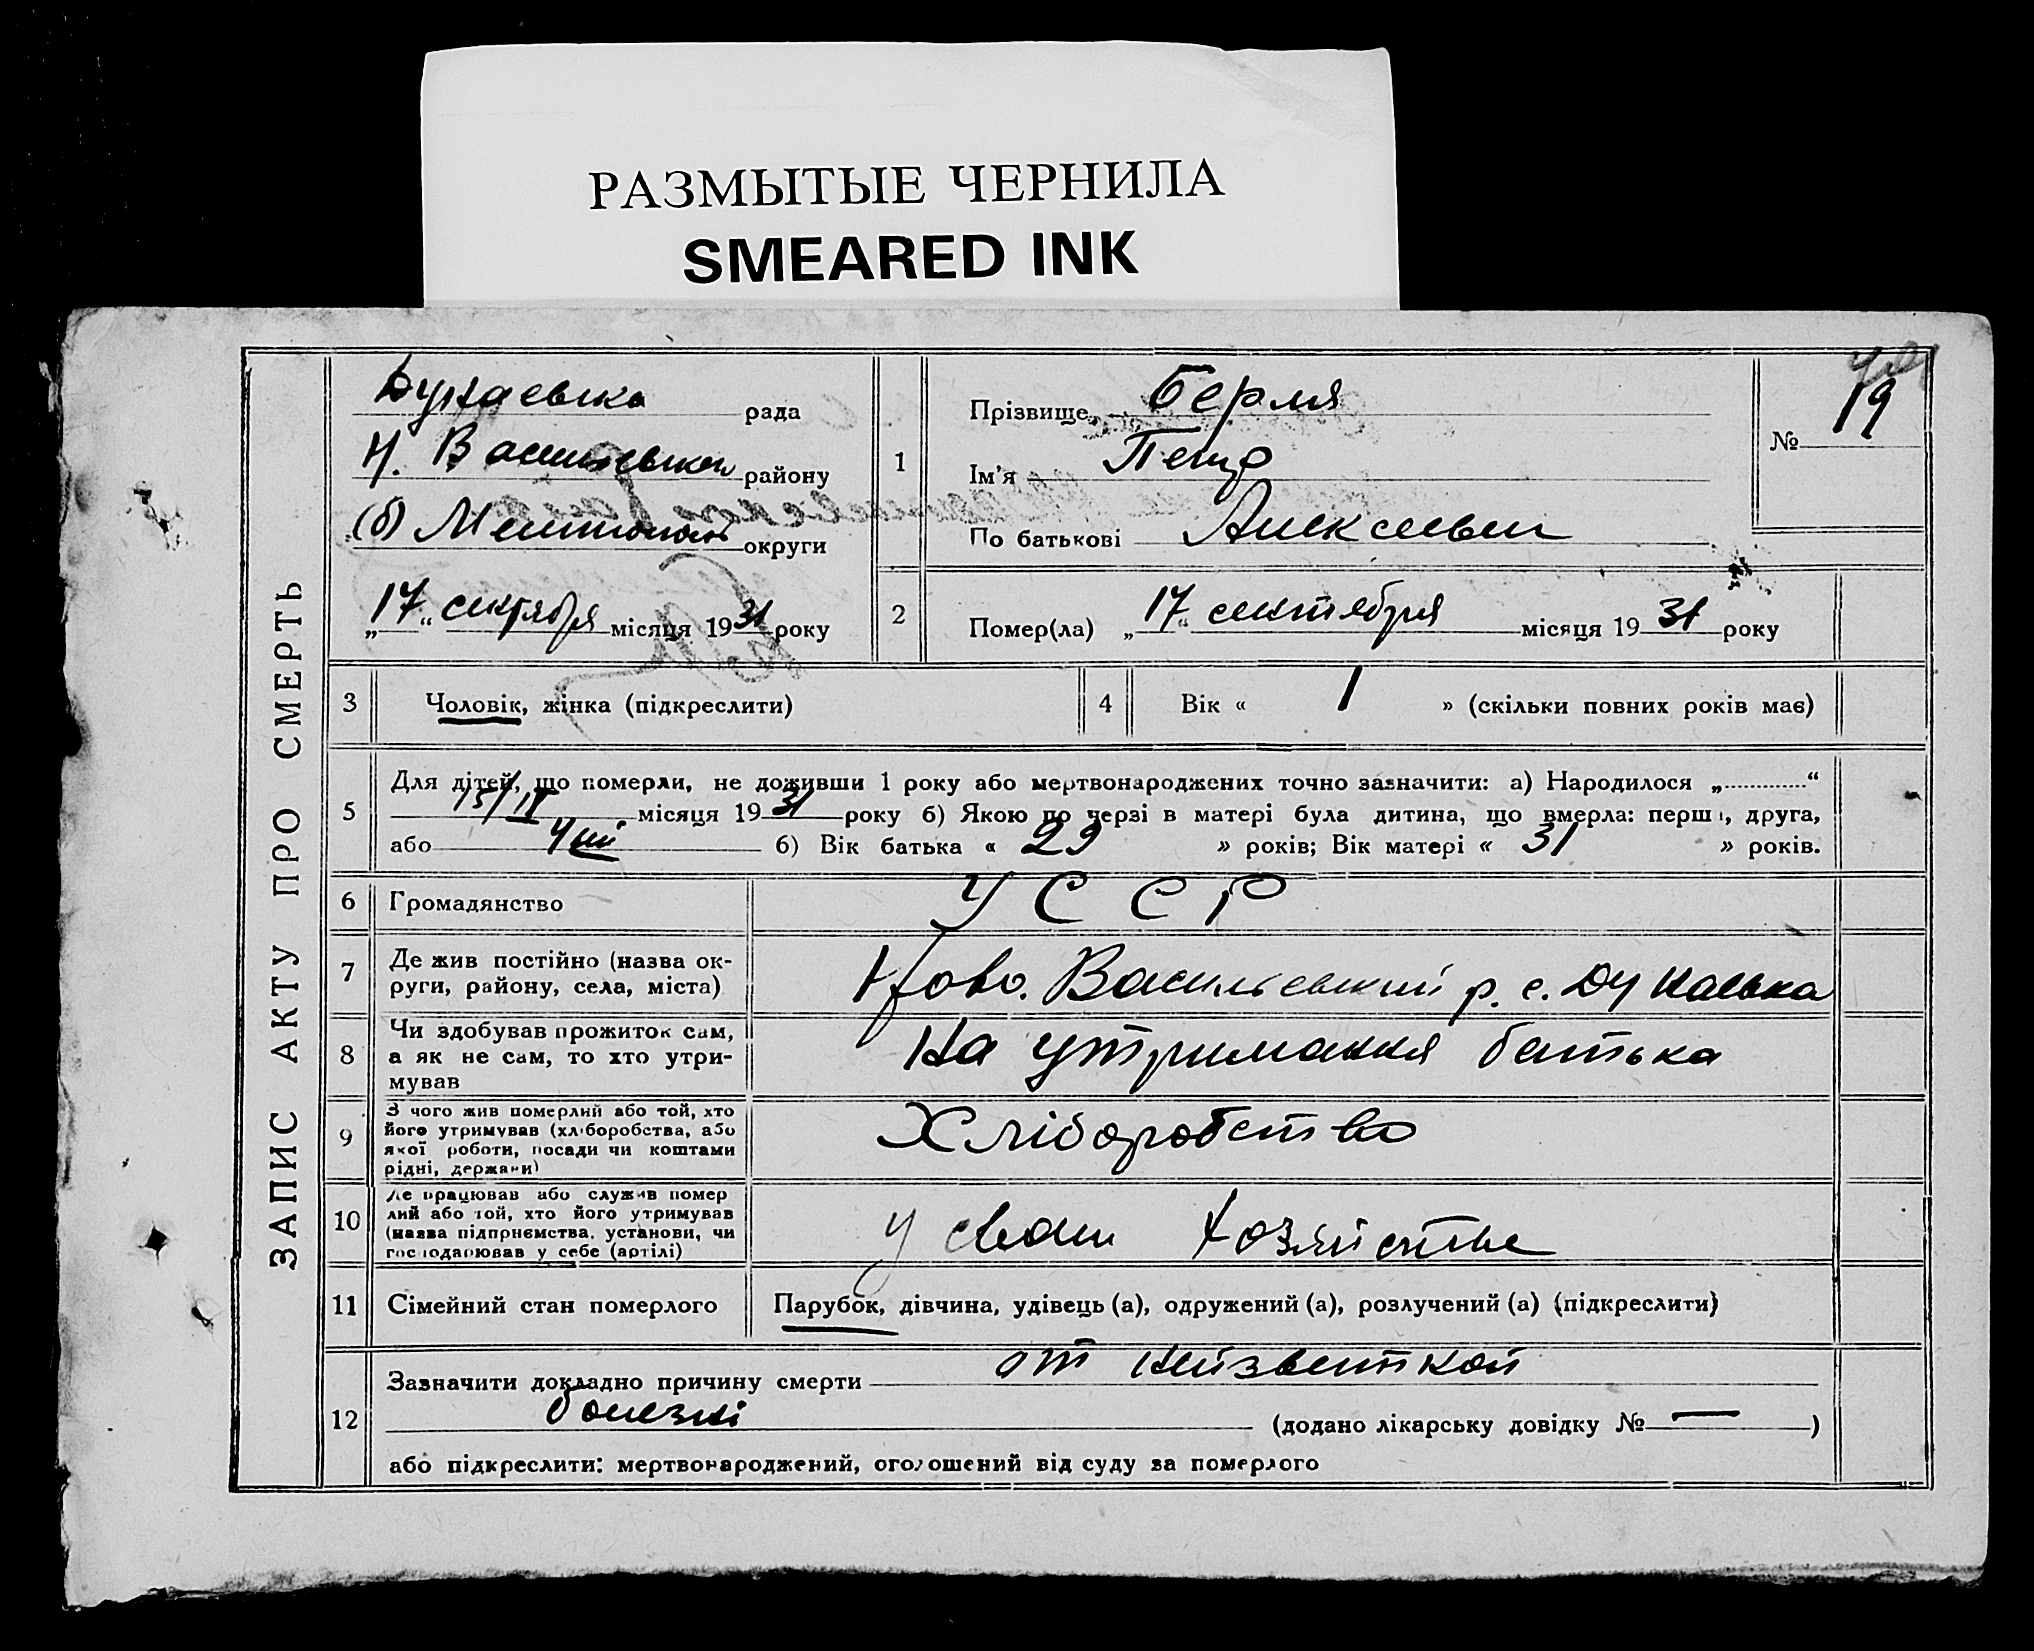 РАЗМЫТЫЕ ЧЕРНИЛА
SMEARED INK
ЗАПИС АКТУ ПРО СМЕРТЬ
Дунаевska рада
Н. Васильевskой району
(б) Мелитополь округи
„17“ сентября місяця 1931 року
1
Прізвище Берля
Ім'я Петр
По батькові Алексеевич
№ 19
2
Помер(ла) „17“ сентября місяця 1931 року
3 Чоловік, жінка (підкреслити)
4 Вік « 1 » (скільки повних років має)
5 Для дітей, що померли, не доживши 1 року або мертвонароджених точно зазначити: а) Народилося „ “
15/IV місяця 1931 року б) Якою по черзі в матері була дитина, що вмерла: перша, друга,
або 4 ий б) Вік батька « 29 » років; Вік матері « 31 » років.
6 Громадянство УССР
7 Де жив постійно (назва ок-
руги, району, села, міста)
Ново. Васильевский р. с. Дунаевка
8 Чи здобував прожиток сам,
а як не сам, то хто утри-
мував
На утримання батька
9 З чого жив померлий або той, хто
його утримував (хліборобства, або
якої роботи, посади чи коштами
рідні, держави)
Хліборобство
10 Де працював або служив помер
лий або той, хто його утримував
(назва підприємства, установи, чи
господарював у себе (артілі)
у своем хозяйстве
11 Сімейний стан померлого Парубок, дівчина, удівець (а), одружений (а), розлучений (а) (підкреслити)
12 Зазначити докладно причину смерти от неизвестной
болезні (додано лікарську довідку № — )
або підкреслити: мертвонароджений, оголошений від суду за померлого